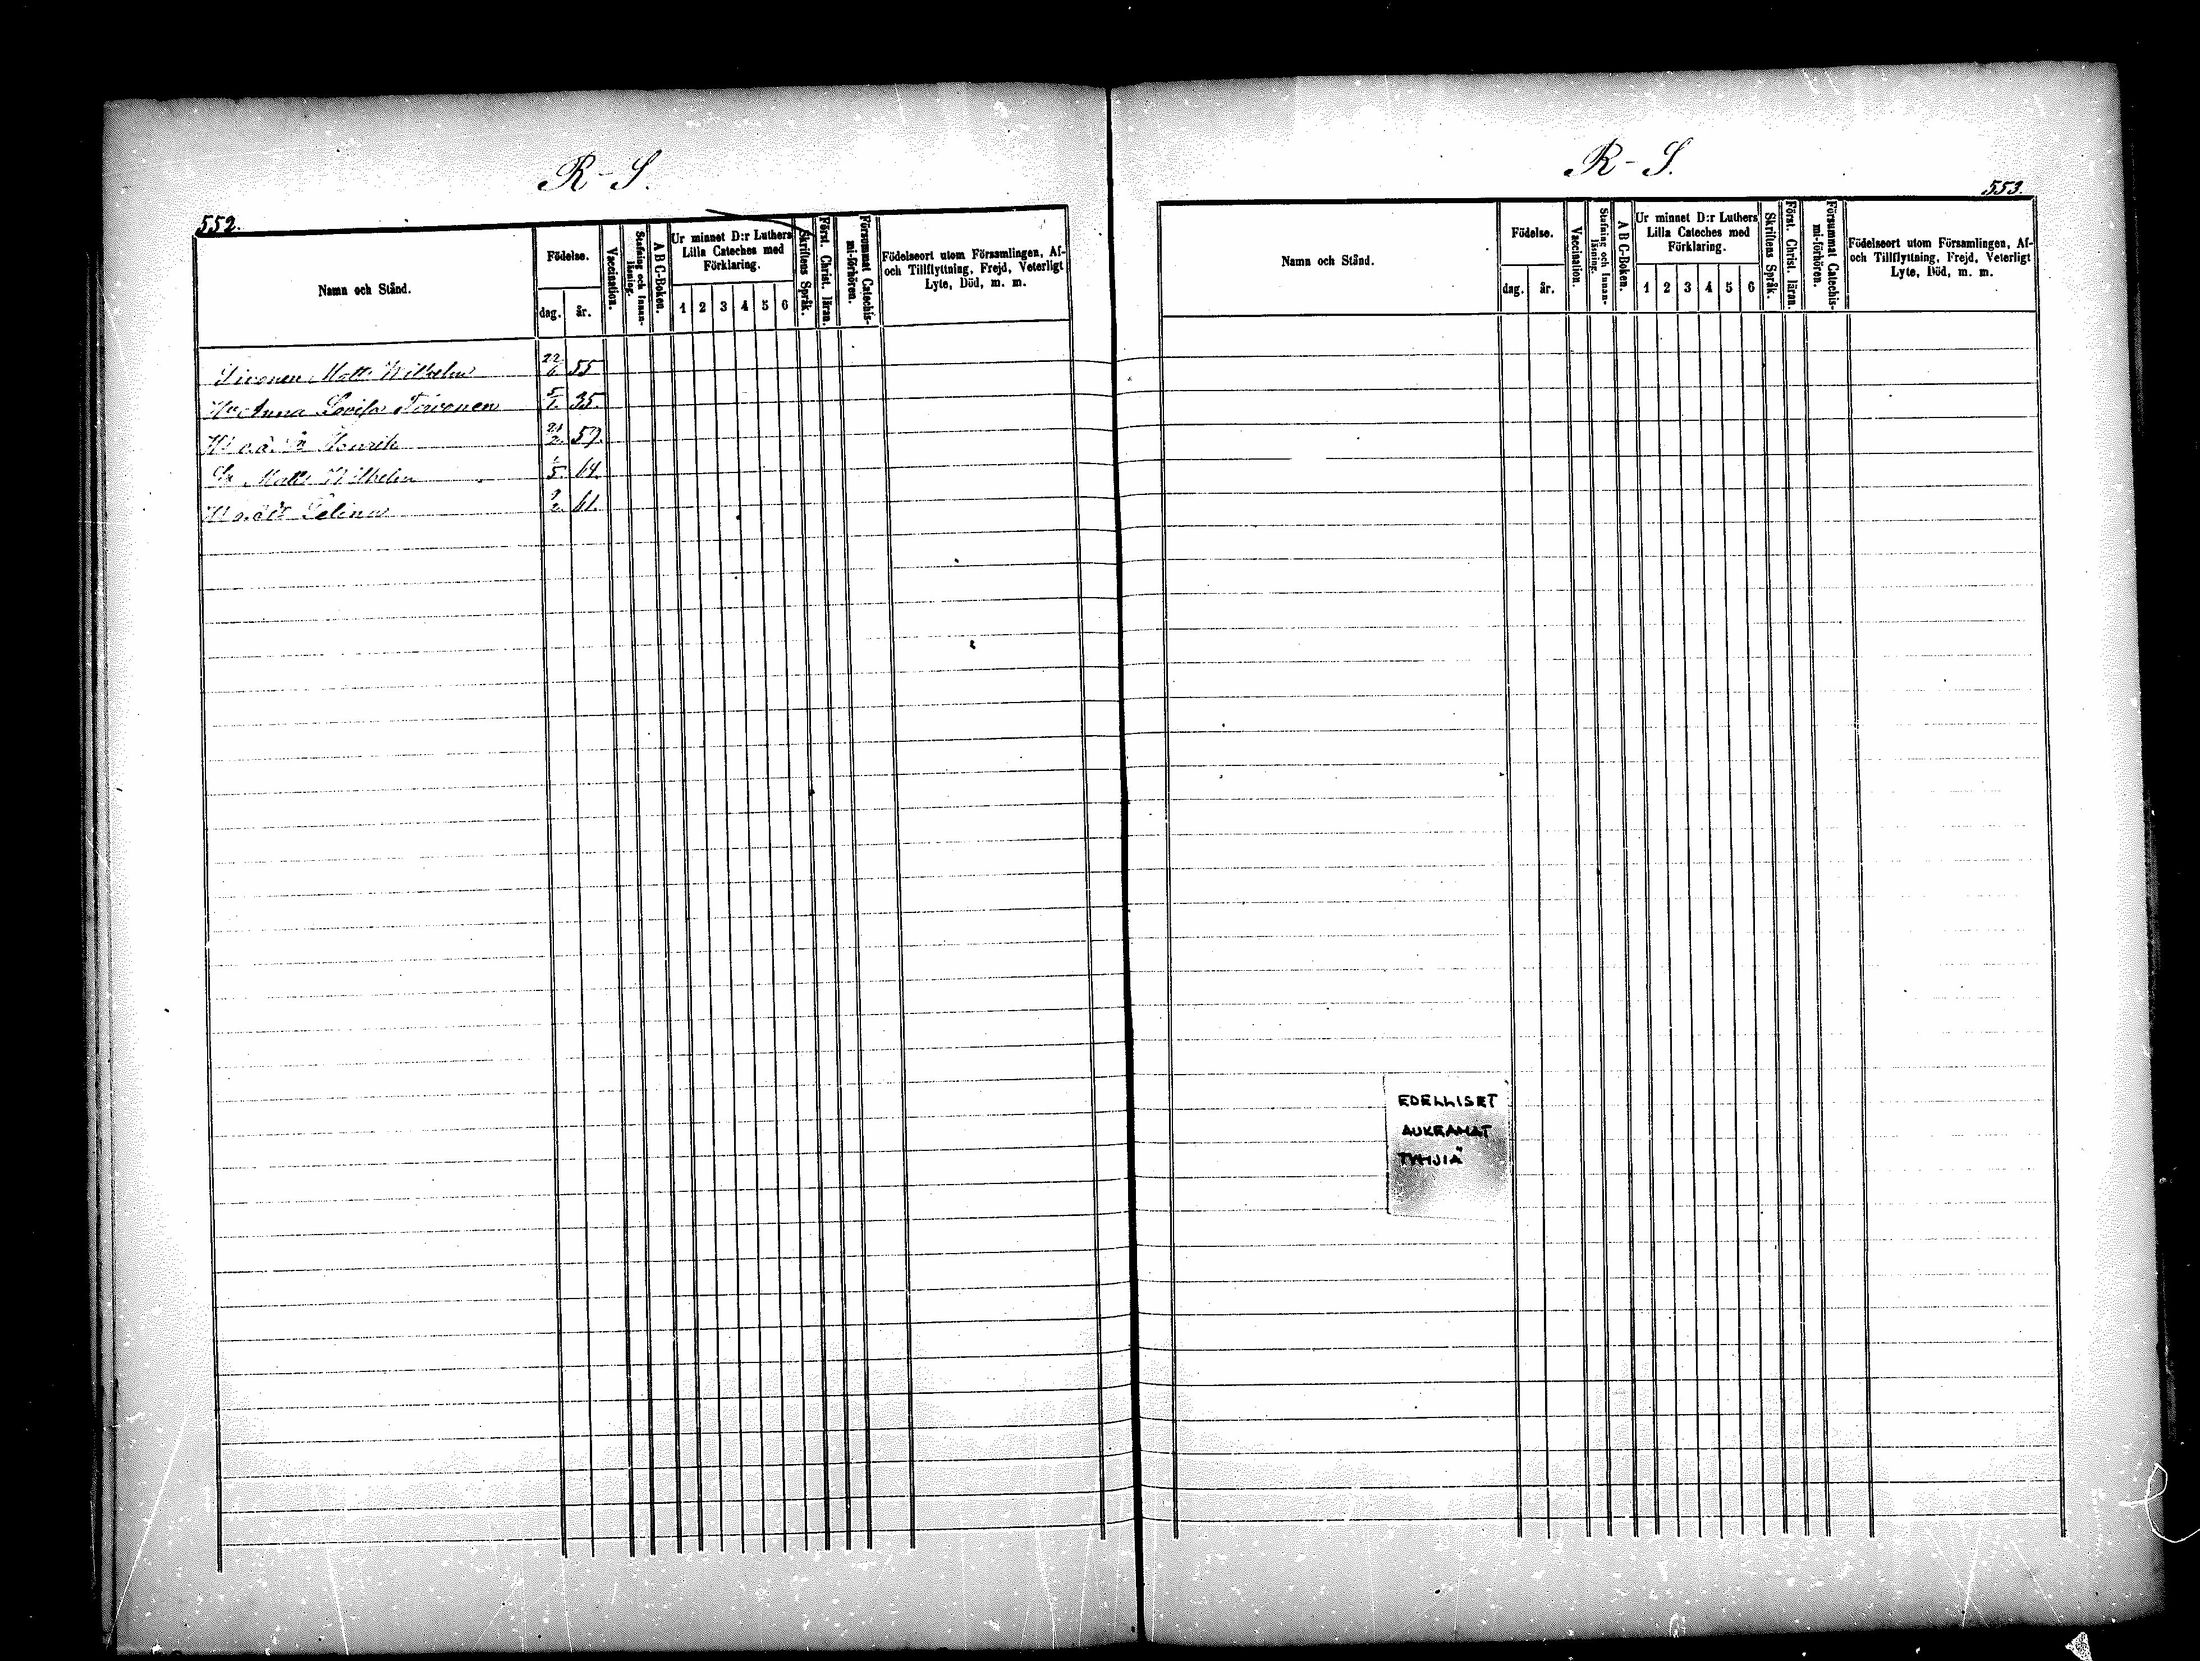 R-S.
552.
Namn och Stånd.
Födelse.
dag.
år.
Vaccination.
Stafning och Innan-
läsning.
A B C-Boken.
Ur minnet D:r Luthers
Lilla Cateches med
Förklaring.
1 2 3 4 5 6
Skriftens Språk.
Först. Christ. läran.
Försummat Catechis-
mi-förhören.
Födelseort utom Församlingen, Af-
och Tillflyttning, Frejd, Veterligt
Lyte, Död, m. m.
Sivonen Matts Wilhelm 22/6 55
Anna Lovisa Toivonen 5/1. 35.
21/2. 57.
Matts Wilhelm 1/5. 64.
Selina 9/2. 61.
R-S.
553.
Namn och Stånd.
Födelse.
dag.
år.
Vaccination.
Stafning och Innan-
läsning.
A B C-Boken.
Ur minnet D:r Luthers
Lilla Cateches med
Förklaring.
1 2 3 4 5 6
Skriftens Språk.
Först. Christ. läran.
Försummat Catechis-
mi-förhören.
Födelseort utom Församlingen, Af-
och Tillflyttning, Frejd, Veterligt
Lyte, Död, m. m.
EDELLISET
AUKEAMAT
TYHJIÄ